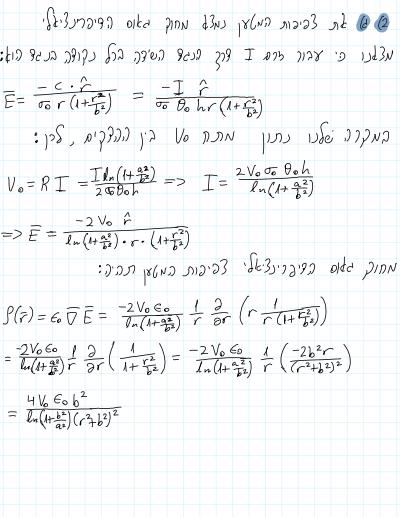 ② ⓐ את צפיפות המטען נמצא מחוק גאוס הדיפרנציאלי.
מצאנו כי עבור זרם I דרך הנגד השדה בכל נקודה בנגד הוא:
E̅ = (-c · r̂)/(σ₀ r (1+r²/b²)) = (-I r̂)/(σ₀ θ₀ h r (1+r²/b²))
במקרה שלנו נתון מתח V₀ בין ההדקים, לכן:
V₀ = R I = (I ln(1+a²/b²))/(2σ₀θ₀h) => I = (2V₀ σ₀ θ₀ h)/(ln(1+a²/b²))
=> E̅ = (-2V₀ r̂)/(ln(1+a²/b²) · r · (1+r²/b²))
מחוק גאוס הדיפרנציאלי צפיפות המטען תהיה:
ρ(r̅) = ϵ₀ ∇̅ E̅ = (-2V₀ϵ₀)/(ln(1+a²/b²)) 1/r ∂/∂r (r 1/(r(1+r²/b²)))
= (-2V₀ϵ₀)/(ln(1+a²/b²)) 1/r ∂/∂r (1/(1+r²/b²)) = (-2V₀ϵ₀)/(ln(1+a²/b²)) 1/r (-2b²r/((r²+b²)²))
= (4V₀ϵ₀b²)/(ln(1+b²/a²)(r²+b²)²)